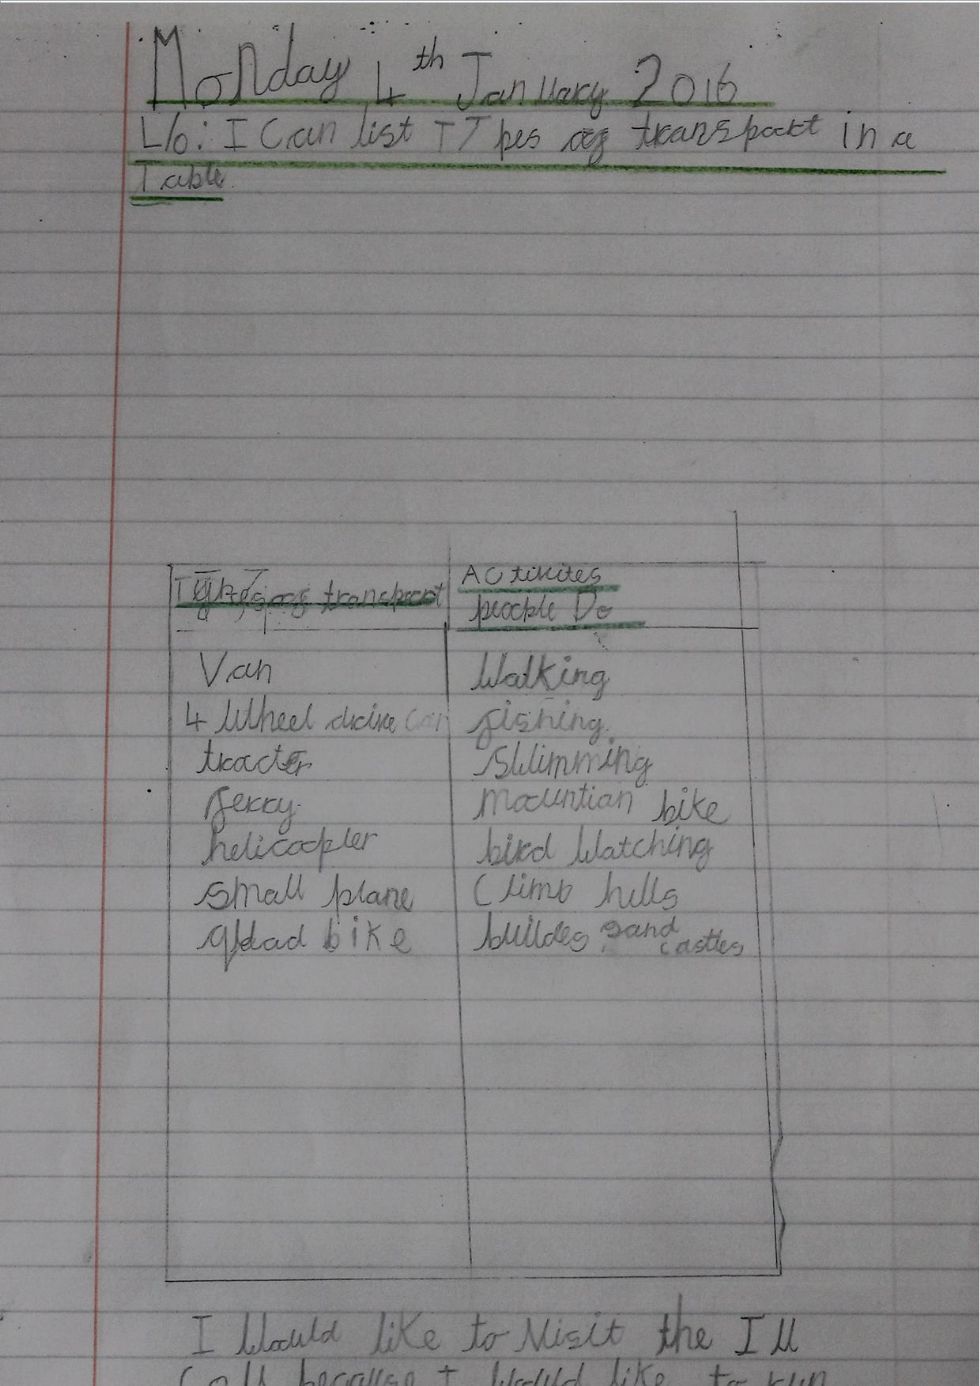 Monday 4th January 2016
L/O: I Can list TYpes of transport in a
Table.
Types of transport
Activites
people Do
Van
Walking
4 Wheel drive Car
fishing.
tracter
swimming
ferry
mountian bike
helicopter
bird Watching
small plane
Climb hills
quad bike
buildes sand
castles
I Would like to Visit the
because I Would like to run